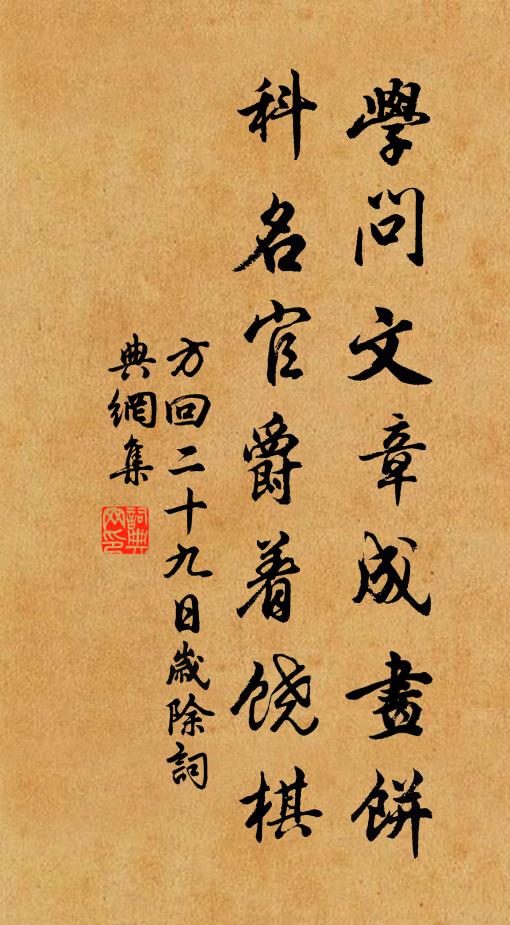 學問文章成畫餅
科名官爵着饶棋
方回二十九日歲除詞
典網集
詞典網印